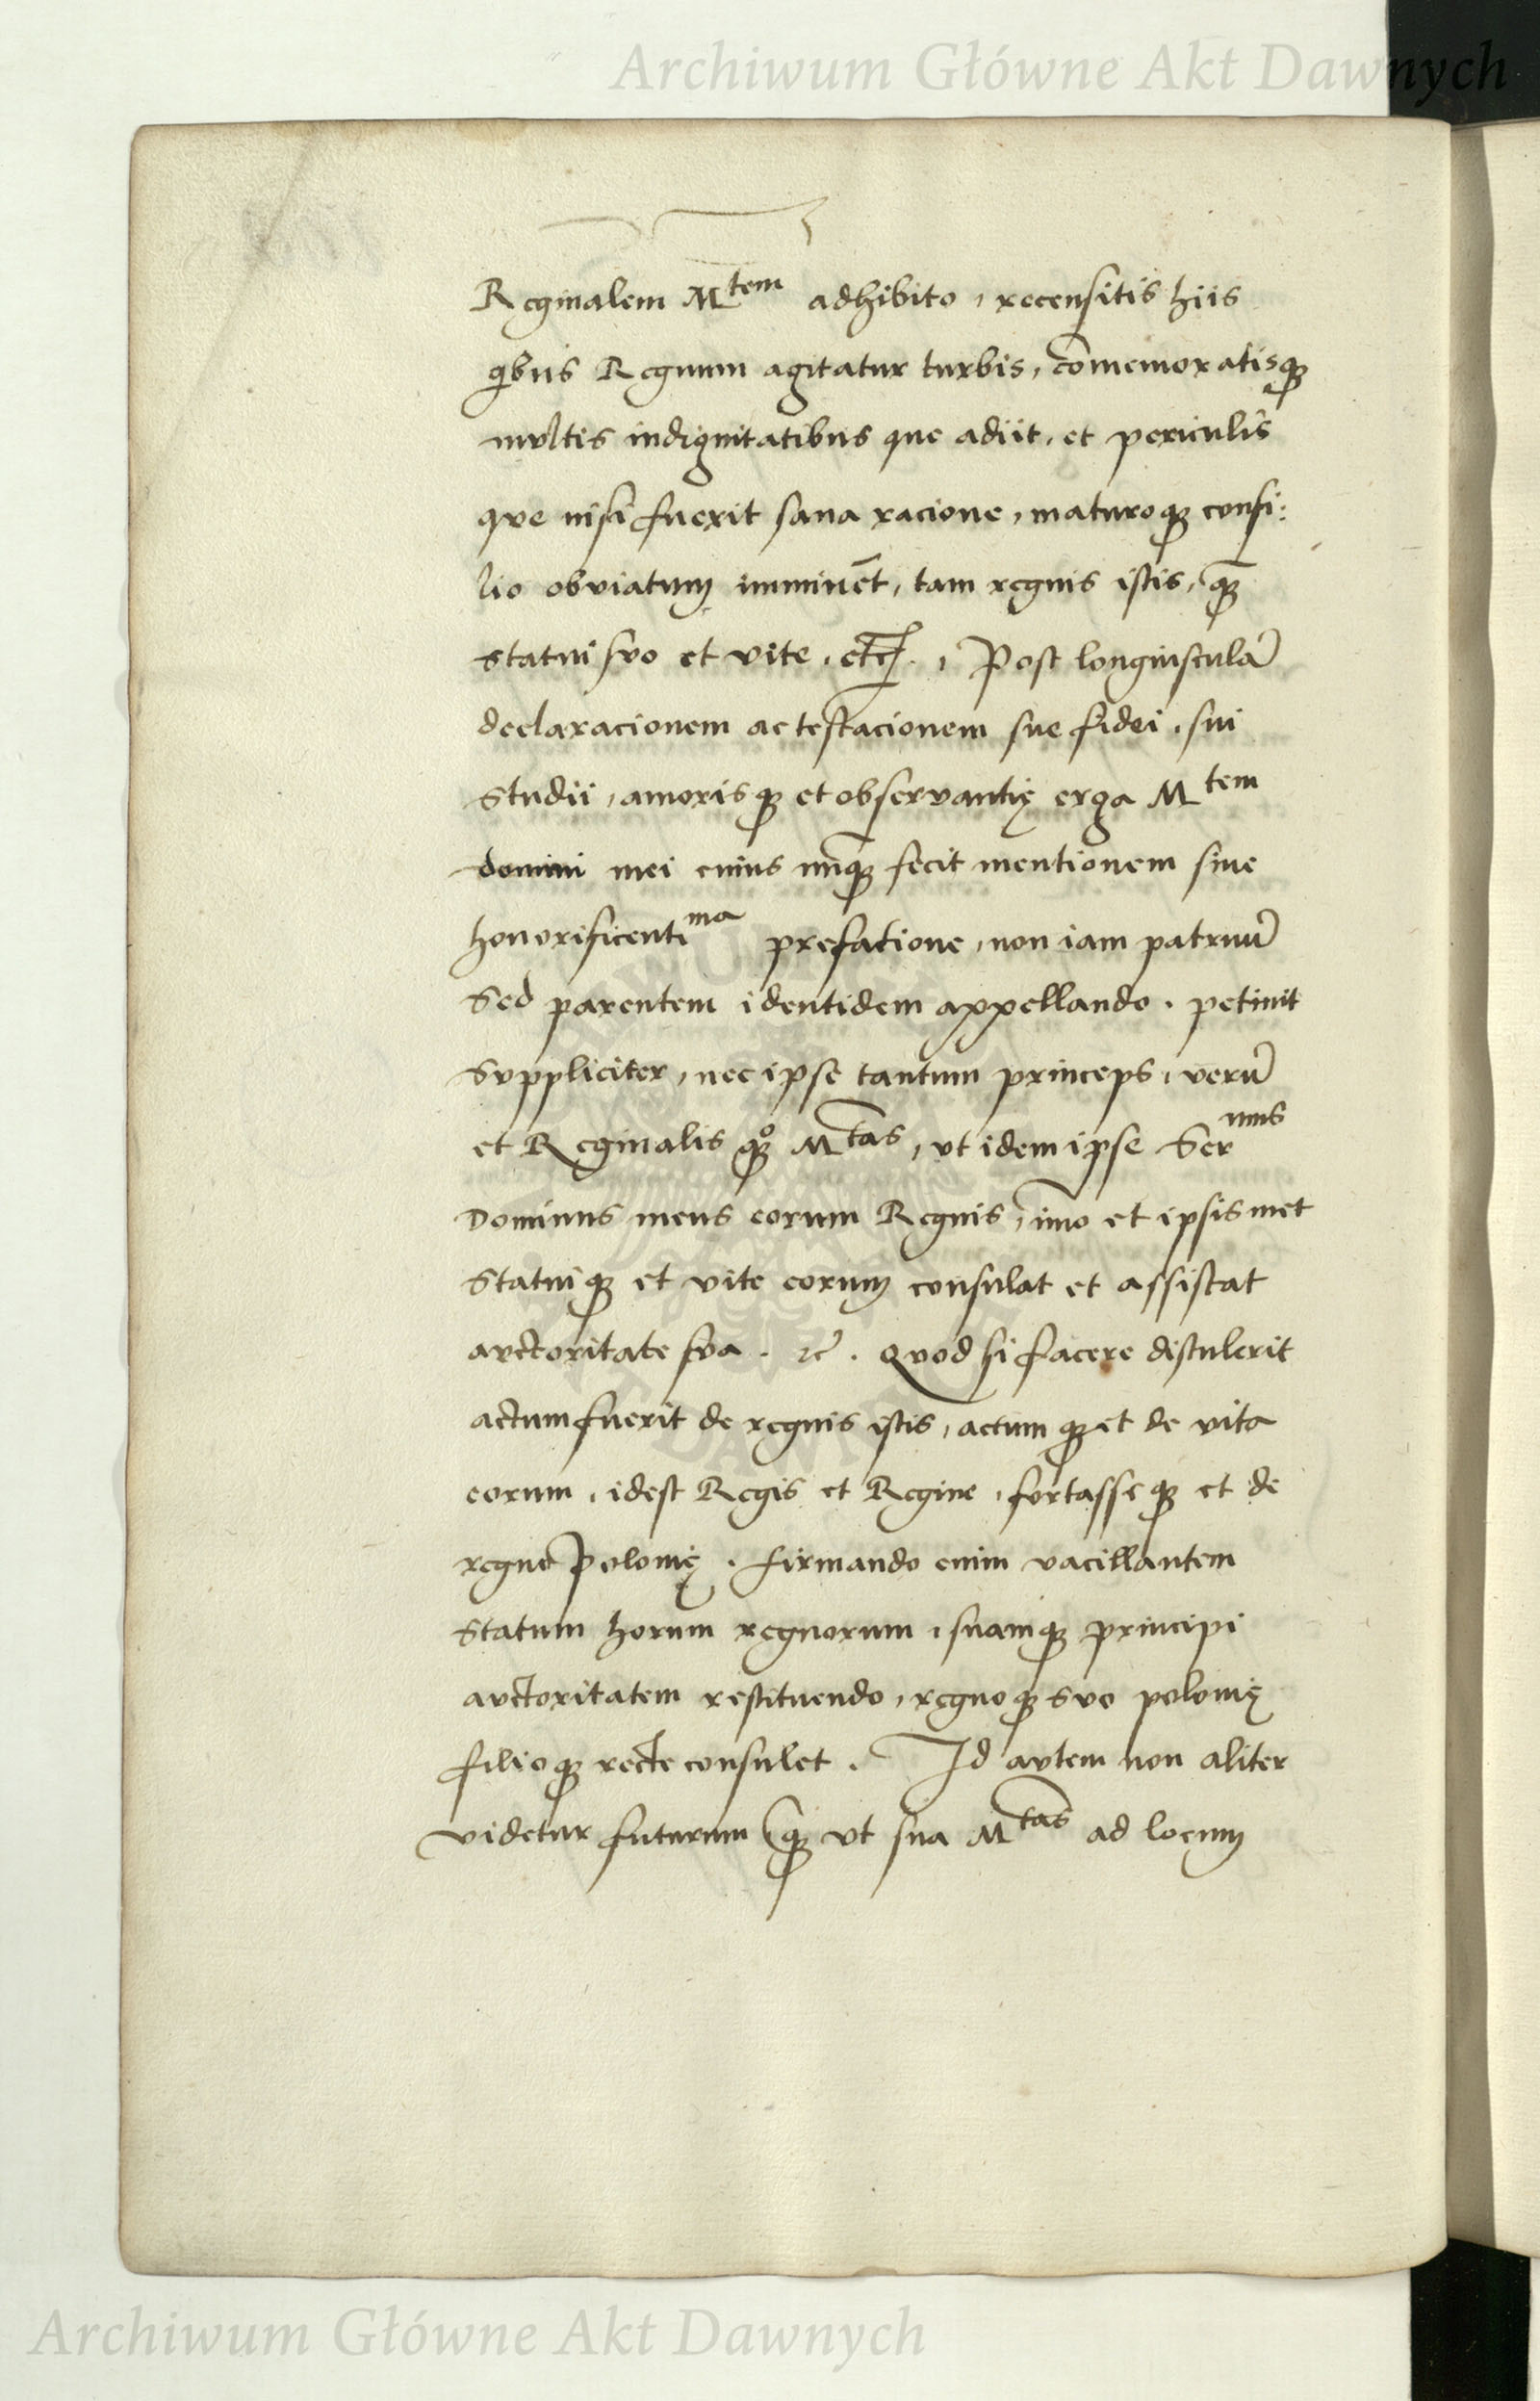 Archiwum Główne Akt Dawnych
Reginalem M^tem adhibito, recensitis hiis
qibus Regnum agitatur turbis, com̄emoratisq̃
multis indignitatibus que adiit, et periculis
que nisi fuerit sana racione, maturoq̃ consi:
lio obviatum imminēt, tam regnis istis, q̃
statui suo et vite, etc̃. Post longiusculā
declaracionem ac testacionem sue fidei, sui
Studii, amorisq̃ et observantię erga M^tem
domini mei cuius nunq̃ fecit mentionem sine
honorificenti^ma prefatione, non iam patruū
Sed parentem identidem appellando. petiuit
Suppliciter, nec ipse tantum princeps, verū
et Reginalis qq̊ M^tas, vt idem ipse Ser^mus
Dominus meus eorum Regnis, imo et ipsismet
Statuiq̃ et vite eorum consulat et assistat
auctoritate sua. &c̃. Quod si facere distulerit
actum fuerit de regnis istis, actumq̃ et de vita
eorum, idest Regis et Regine, fortasseq̃ et de
regno polonię. firmando enim vacillantem
Statum horum regnorum, suamq̃ principi
auctoritatem restituendo, regnoq̃ suo polonię
filioq̃ recte consulet. Id autem non aliter
videtur futurum q̃ vt sua M^tas ad locum
Archiwum Główne Akt Dawnych